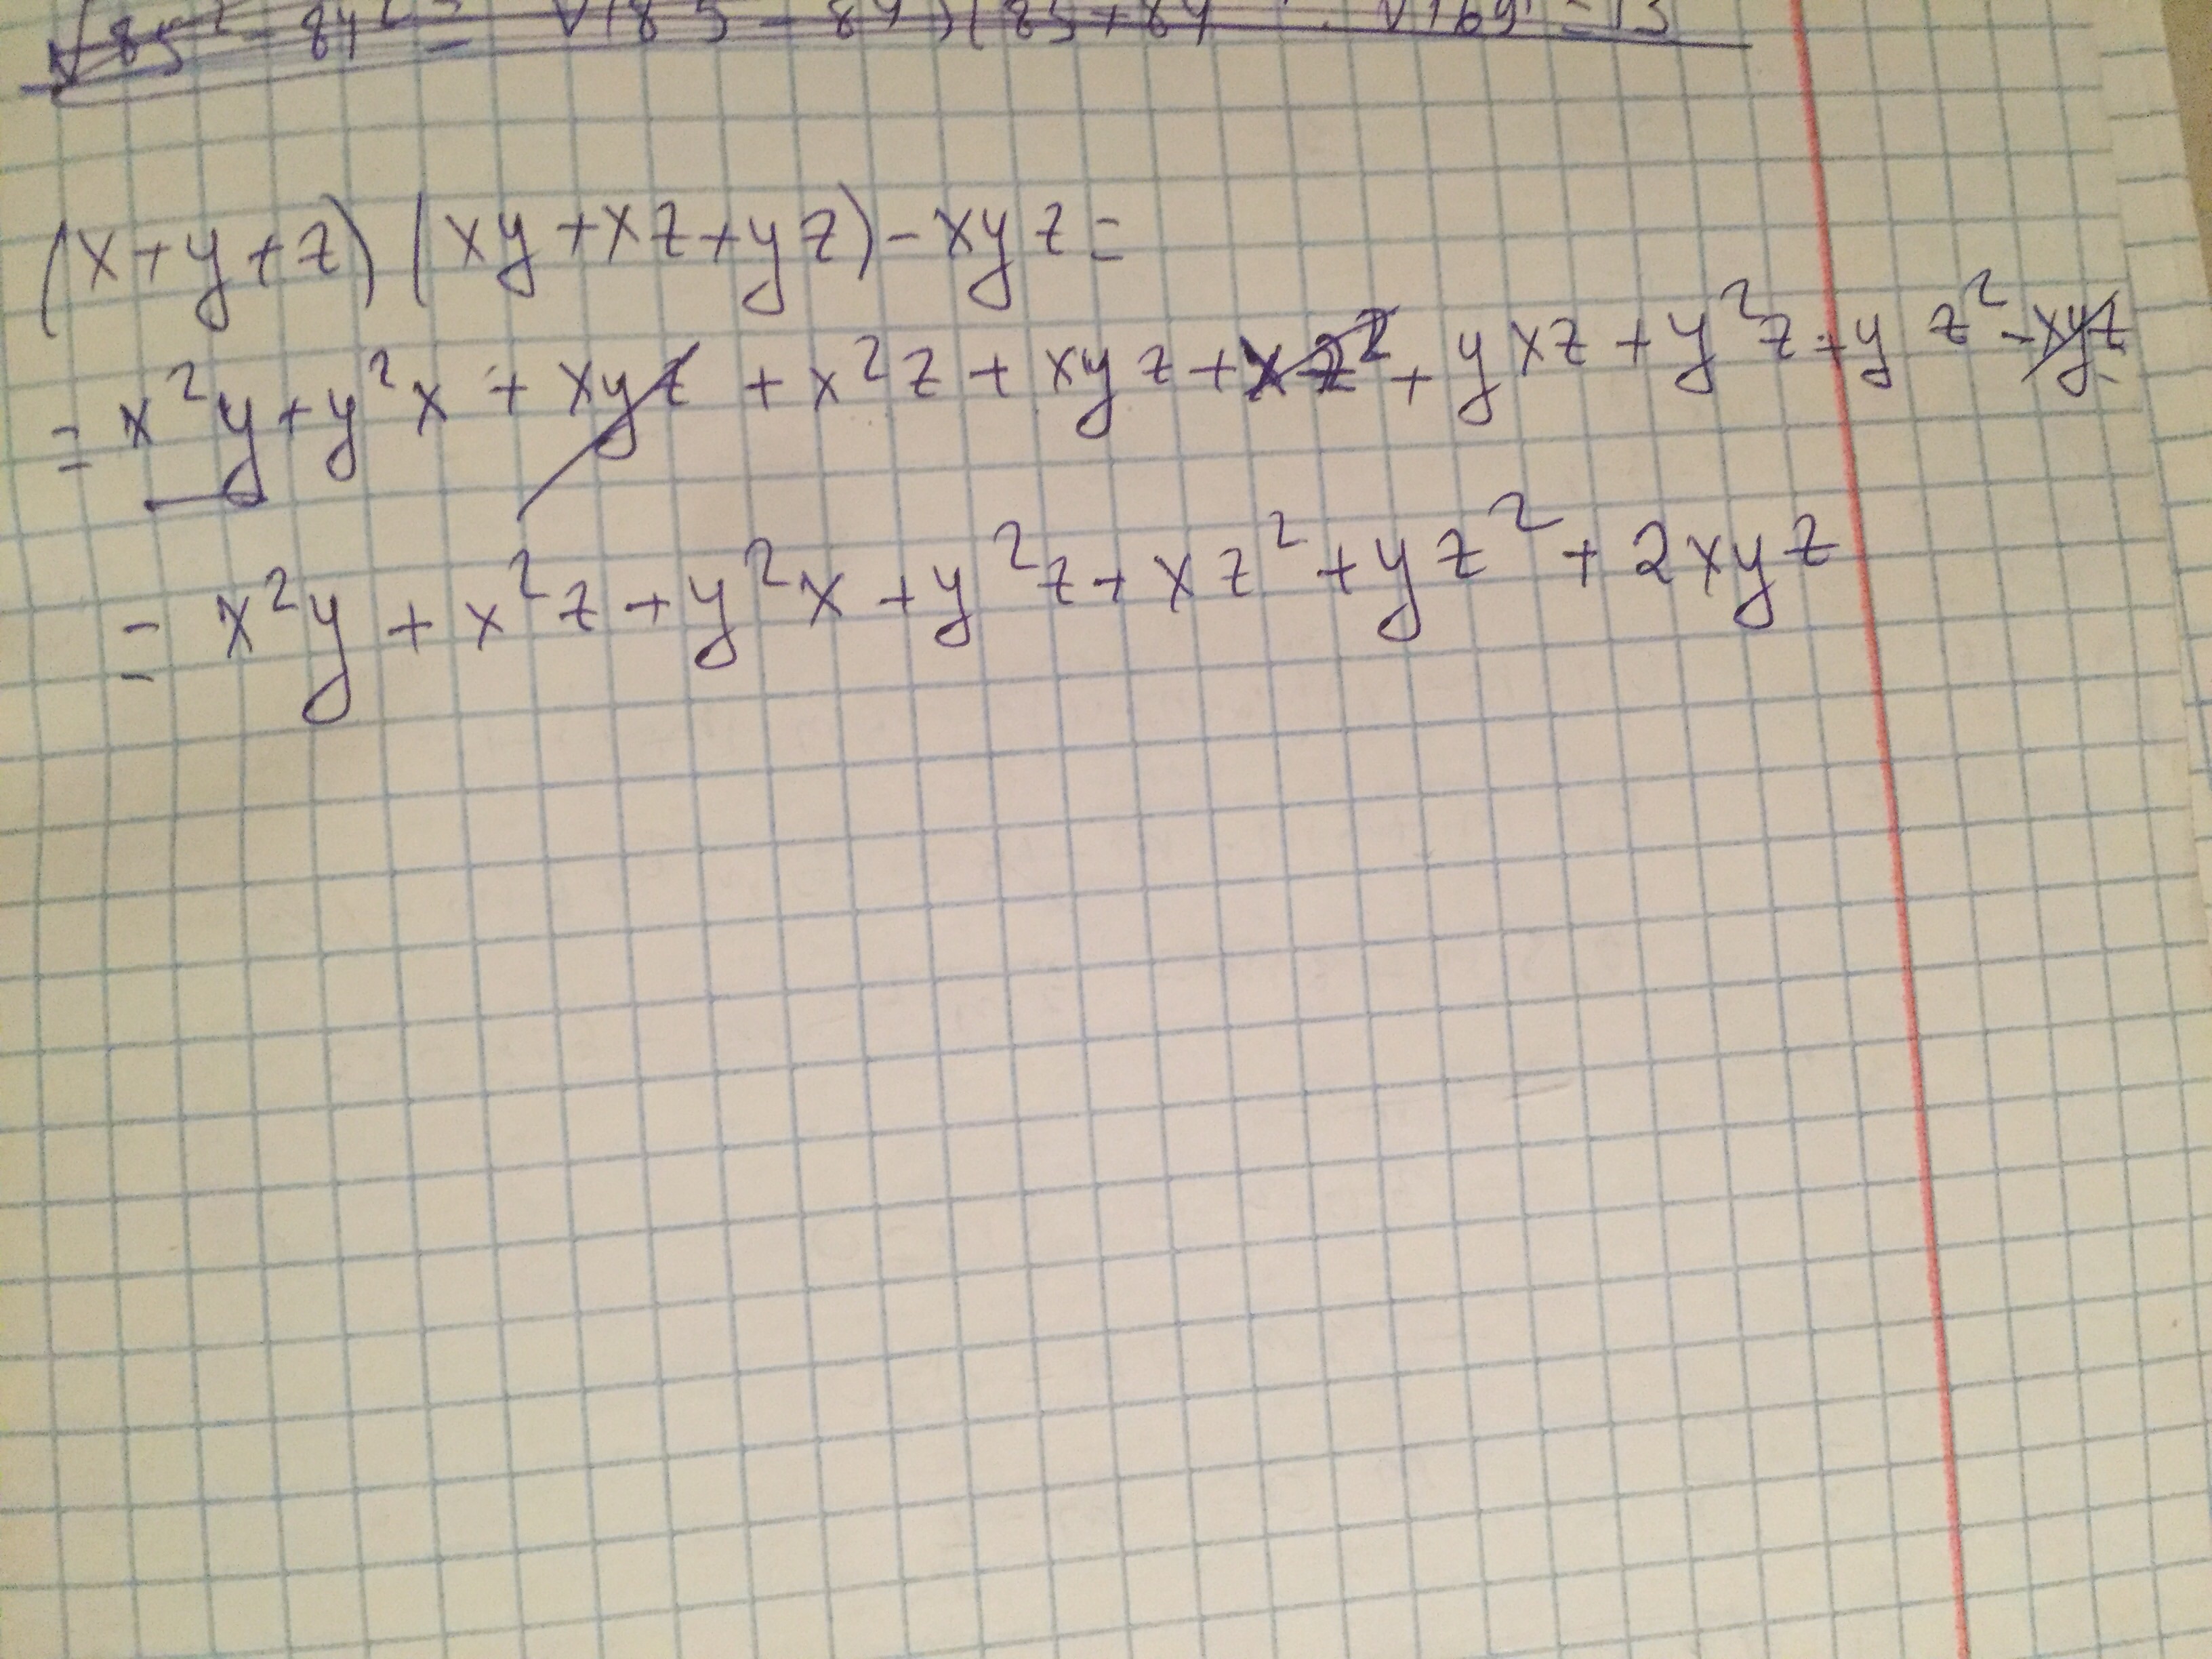 √85² - 84² = √(85 - 84)(85 + 84 √169 = 13
(x+y+z)(xy+xz+yz)-xyz=
=x²y+y²x+xyz+x²z+xyz+xz²+yxz+y²z+yz²-xyz
=x²y+x²z+y²x+y²z+xz²+yz²+2xyz